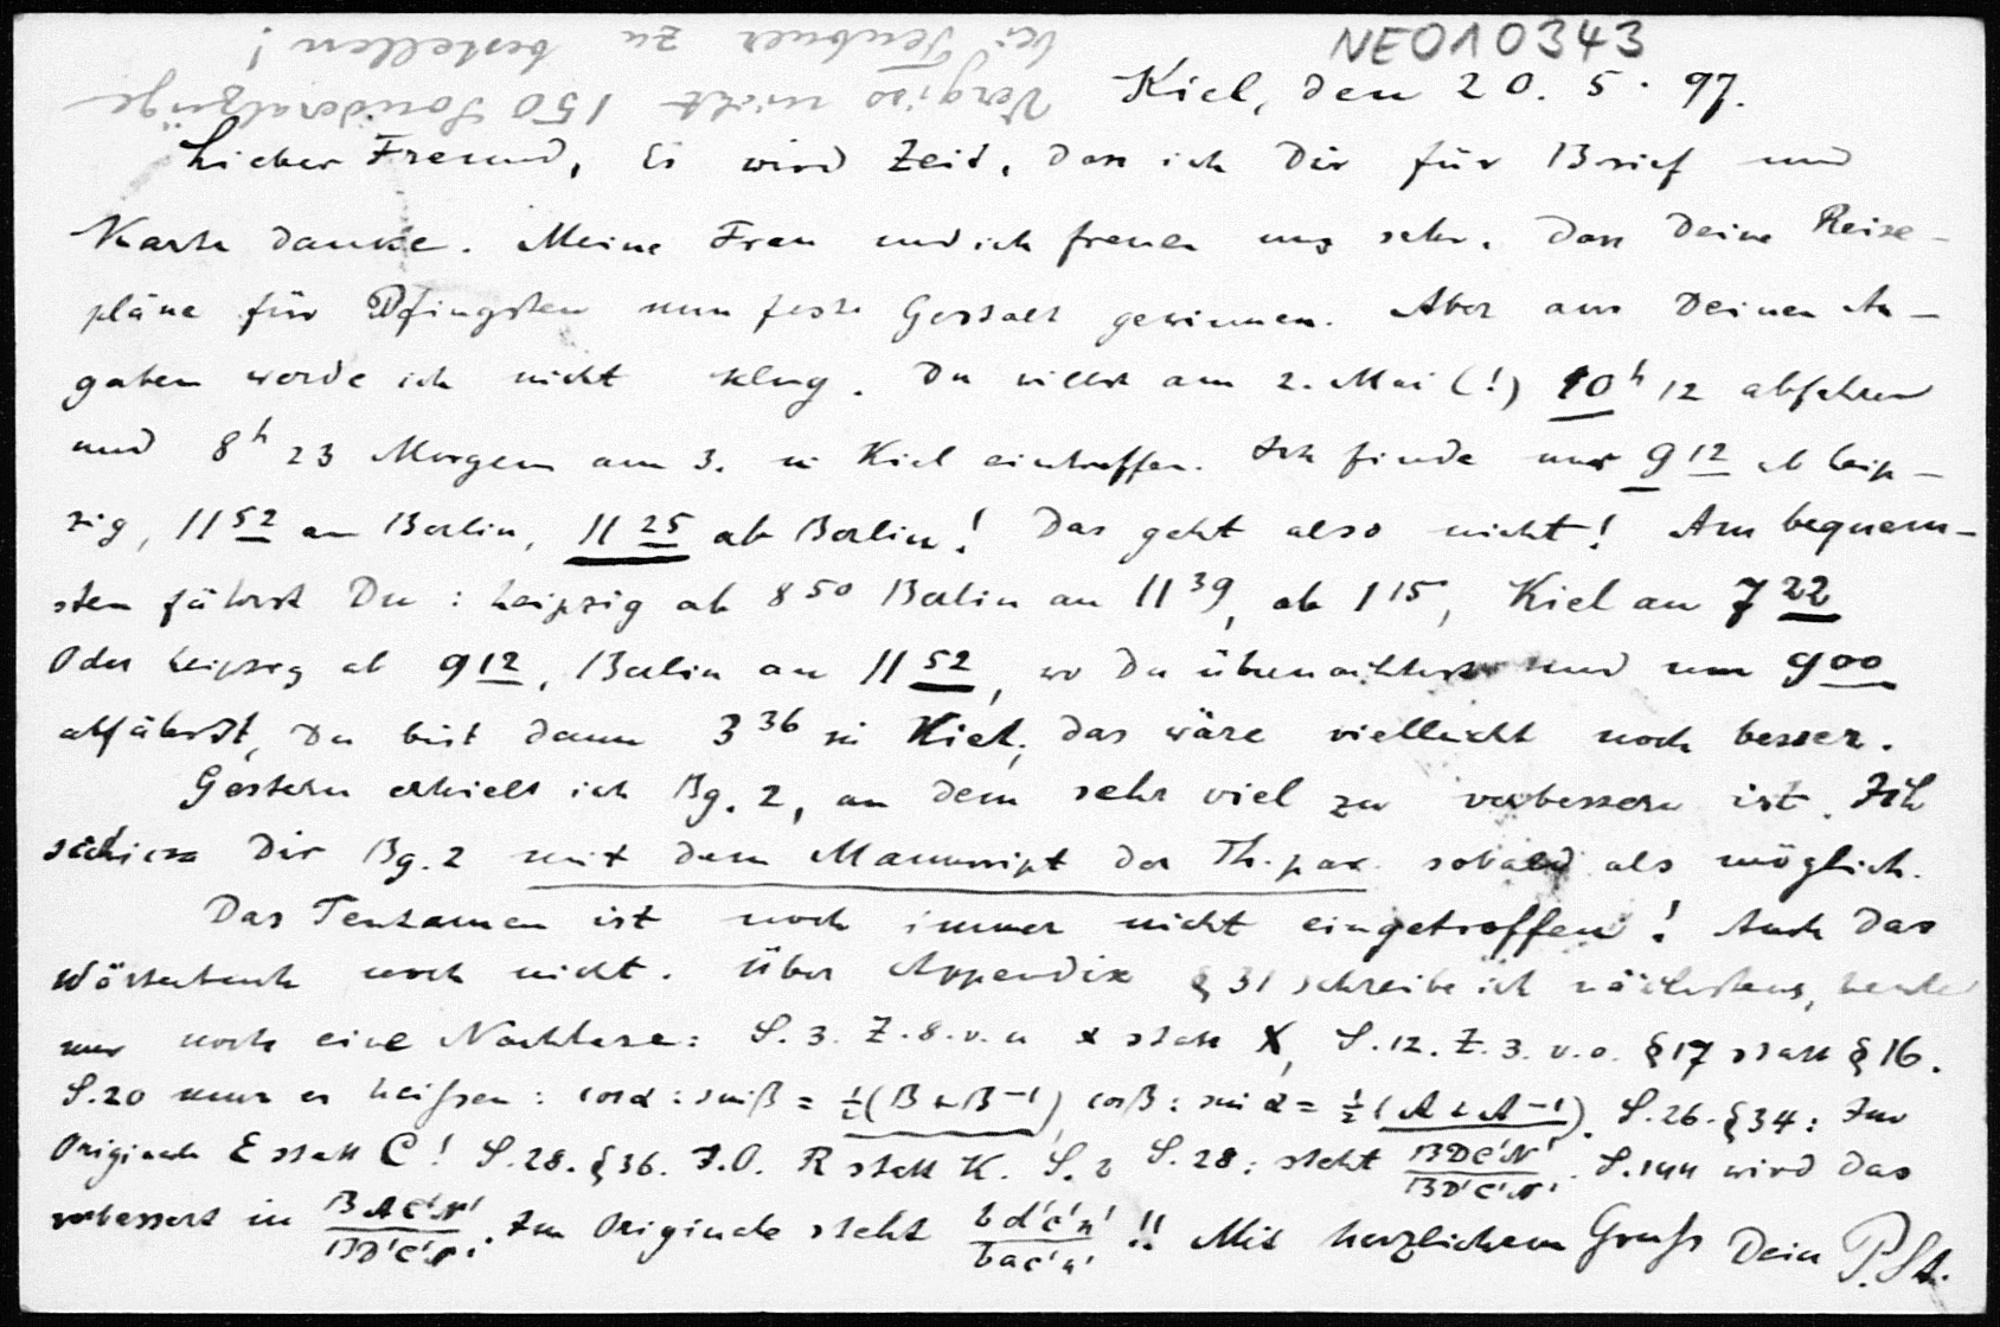 NE010343
Vergiss nicht 150 Sonderabzüge
bei Teubner zu bestellen!
Kiel, den 20. 5. 97.
Lieber Freund, Es wird Zeit, dass ich Dir für Brief und
Karte danke. Meine Frau und ich freuen uns sehr, dass Deine Reise-
pläne für Pfingsten nun feste Gestalt gewinnen. Aber aus Deinen An-
gaben werde ich nicht klug. Du willst am 2. Mai (!) 10h 12 abfahren
und 8h 23 Morgens am 3. in Kiel eintreffen. Ich finde nur 9 12 ab Leip-
zig, 11 52 an Berlin, 11 25 ab Berlin! Das geht also nicht! Am bequem-
sten fährst Du: Leipzig ab 8 50 Berlin an 11 39, ab 1 15, Kiel an 7 22
Oder Leipzig ab 9 12, Berlin an 11 52, wo Du übernachtest und um 9 00
abfährst, Du bist dann 3 36 in Kiel; das wäre vielleicht noch besser.
Gestern erhielt ich Bg. 2, an dem sehr viel zu verbessern ist. Ich
schicke Dir Bg. 2 mit dem Manuscript der Th. par. sobald als möglich.
Das Tentamen ist noch immer nicht eingetroffen! Auch das
Wörterbuch noch nicht. Über Appendix § 31 schreibe ich nächstens, heute
nur noch eine Nachlese: S. 3. Z. 8. v. u x statt X, S. 12. Z. 3. v. o. § 17 statt § 16.
S. 20 muss es heißen: cos α : sin β = ½(B + B⁻¹), cos β : sin α = ½(A + A⁻¹). S. 26. § 34: Im
Originale E statt C! S. 28. § 36. I. O. R statt K. S. 28: steht BDC'N'/BD'C'N'. S. 144 wird das
verbessert in BAC'N'/BD'C'N'. Im Originale steht bd'c'n'/bac'n' !! Mit herzlichem Gruß Dein P. St.